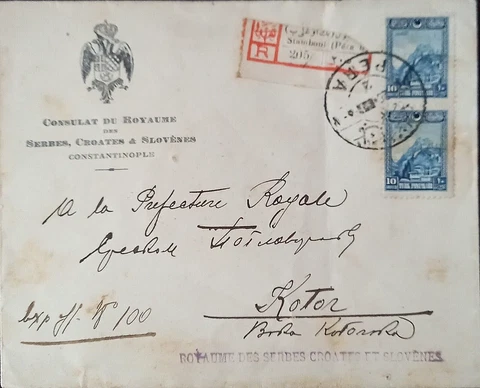 CONSULAT DU ROYAUME
DES
SERBES, CROATES & SLOVÈNES
CONSTANTINOPLE
R
Stamboul (Péra
205
PERA
10
10
A la Prefecture Royale
Среском
Kotor
Boka Kotorska
exp. ff. № 100
ROYAUME DES SERBES CROATES ET SLOVÈNES